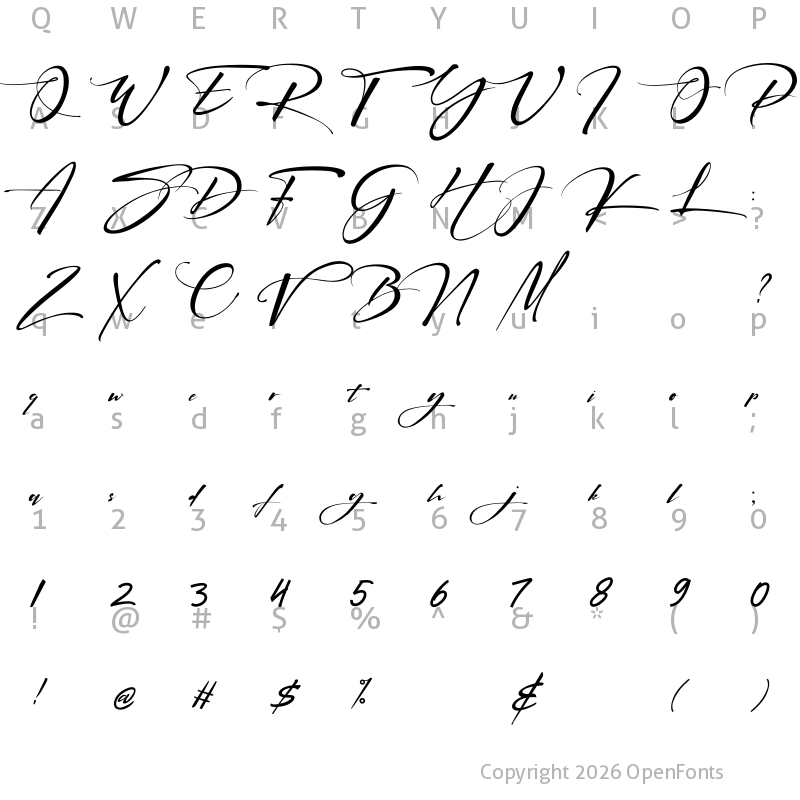 Q W E R T Y U I O P
Q W E R T Y U I O P
A S D F G H J K L :
A S D F G H J K L :
Z X C V B N M < > ?
Z X C V B N M ?
q w e r t y u i o p
q w e r t y u i o p
a s d f g h j k l ;
a s d f g h j k l ;
1 2 3 4 5 6 7 8 9 0
1 2 3 4 5 6 7 8 9 0
! @ # $ % ^ & * ( )
! @ # $ % & ( )
Copyright 2026 OpenFonts